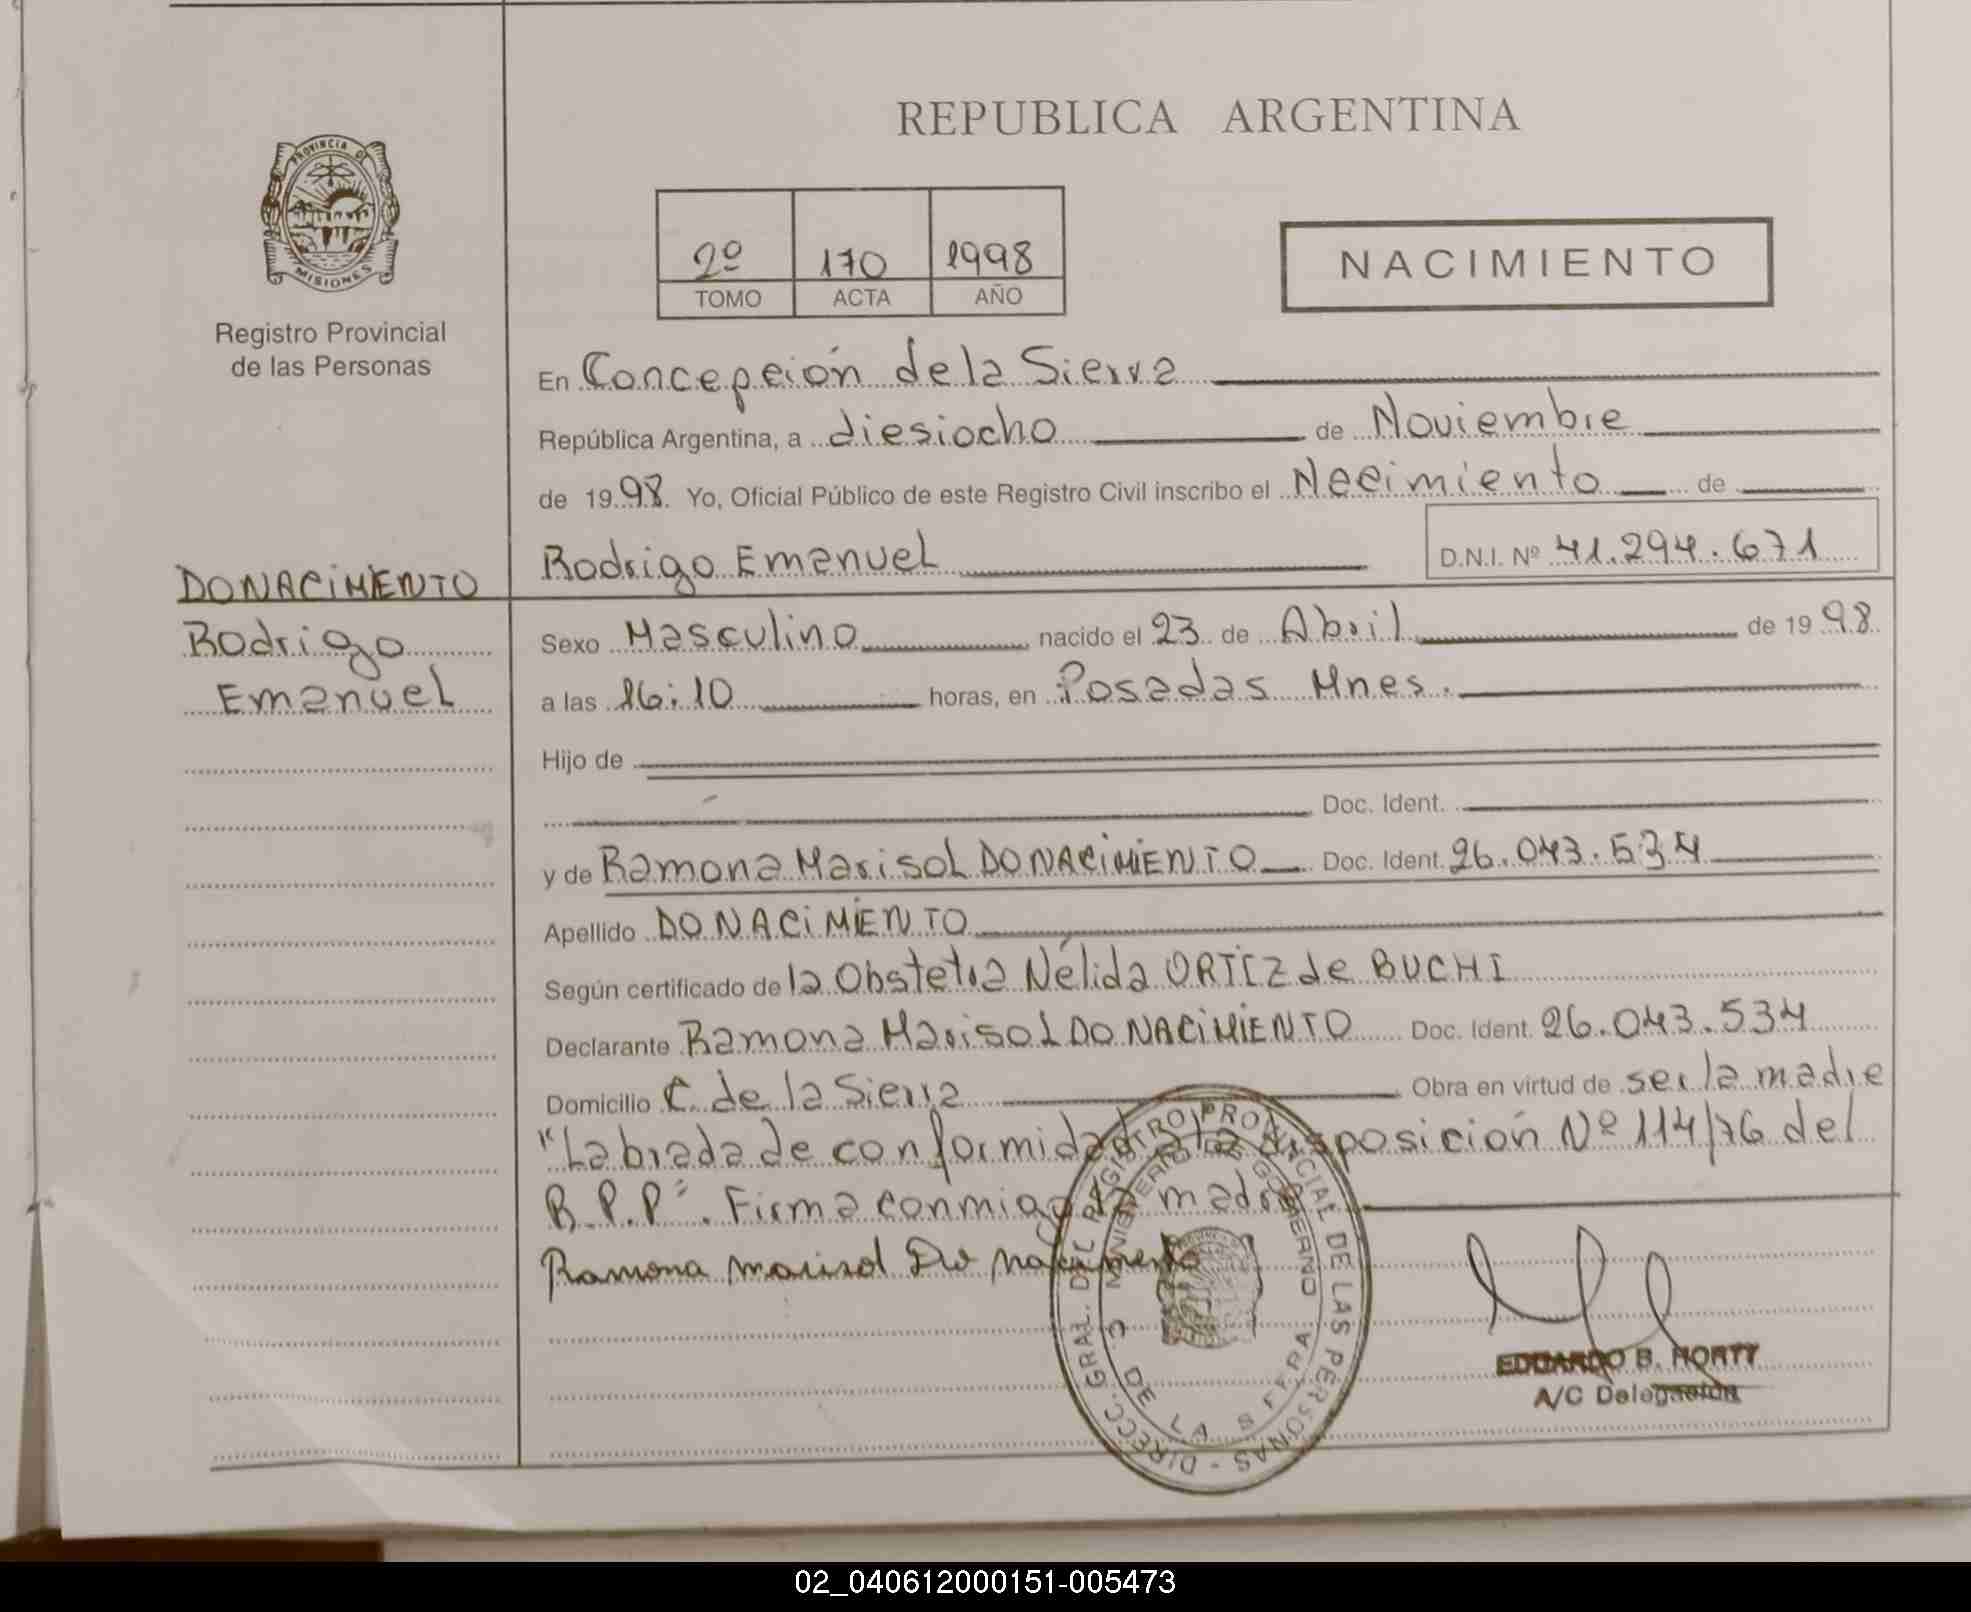 REPUBLICA ARGENTINA
PROVINCIA DE
MISIONES
Registro Provincial
de las Personas
2º 170 1998
TOMO ACTA AÑO
NACIMIENTO
En Concepción de la Sierra
República Argentina, a diesiocho de Noviembre
de 1998 Yo, Oficial Público de este Registro Civil inscribo el Nacimiento de
Rodrigo Emanuel D.N.I. Nº 41.294.671
DONACIMIENTO
Rodrigo
Emanuel
Sexo Masculino nacido el 23 de Abril de 1998
a las 16:10 horas, en Posadas Mnes.
Hijo de
Doc. Ident.
y de Ramona Marisol DONACIMIENTO Doc. Ident. 26.043.534
Apellido DONACIMIENTO
Según certificado de la Obstetra Nélida ORTIZ de BUCHI
Declarante Ramona Marisol DONACIMIENTO Doc. Ident. 26.043.534
Domicilio C. de la Sierra Obra en virtud de ser la madre
"Labrada de conformidad a la disposición Nº 114/76 del
R.P.P". Firma conmigo la madre
Ramona marisol Do nacimento
DIRECC. GRAL. DEL REGISTRO PROVINCIAL DE LAS PERSONAS -
MINISTERIO DE GOBIERNO
C. DE LA SIERRA
EDUARDO B.
A/C Delegación
02_040612000151-005473